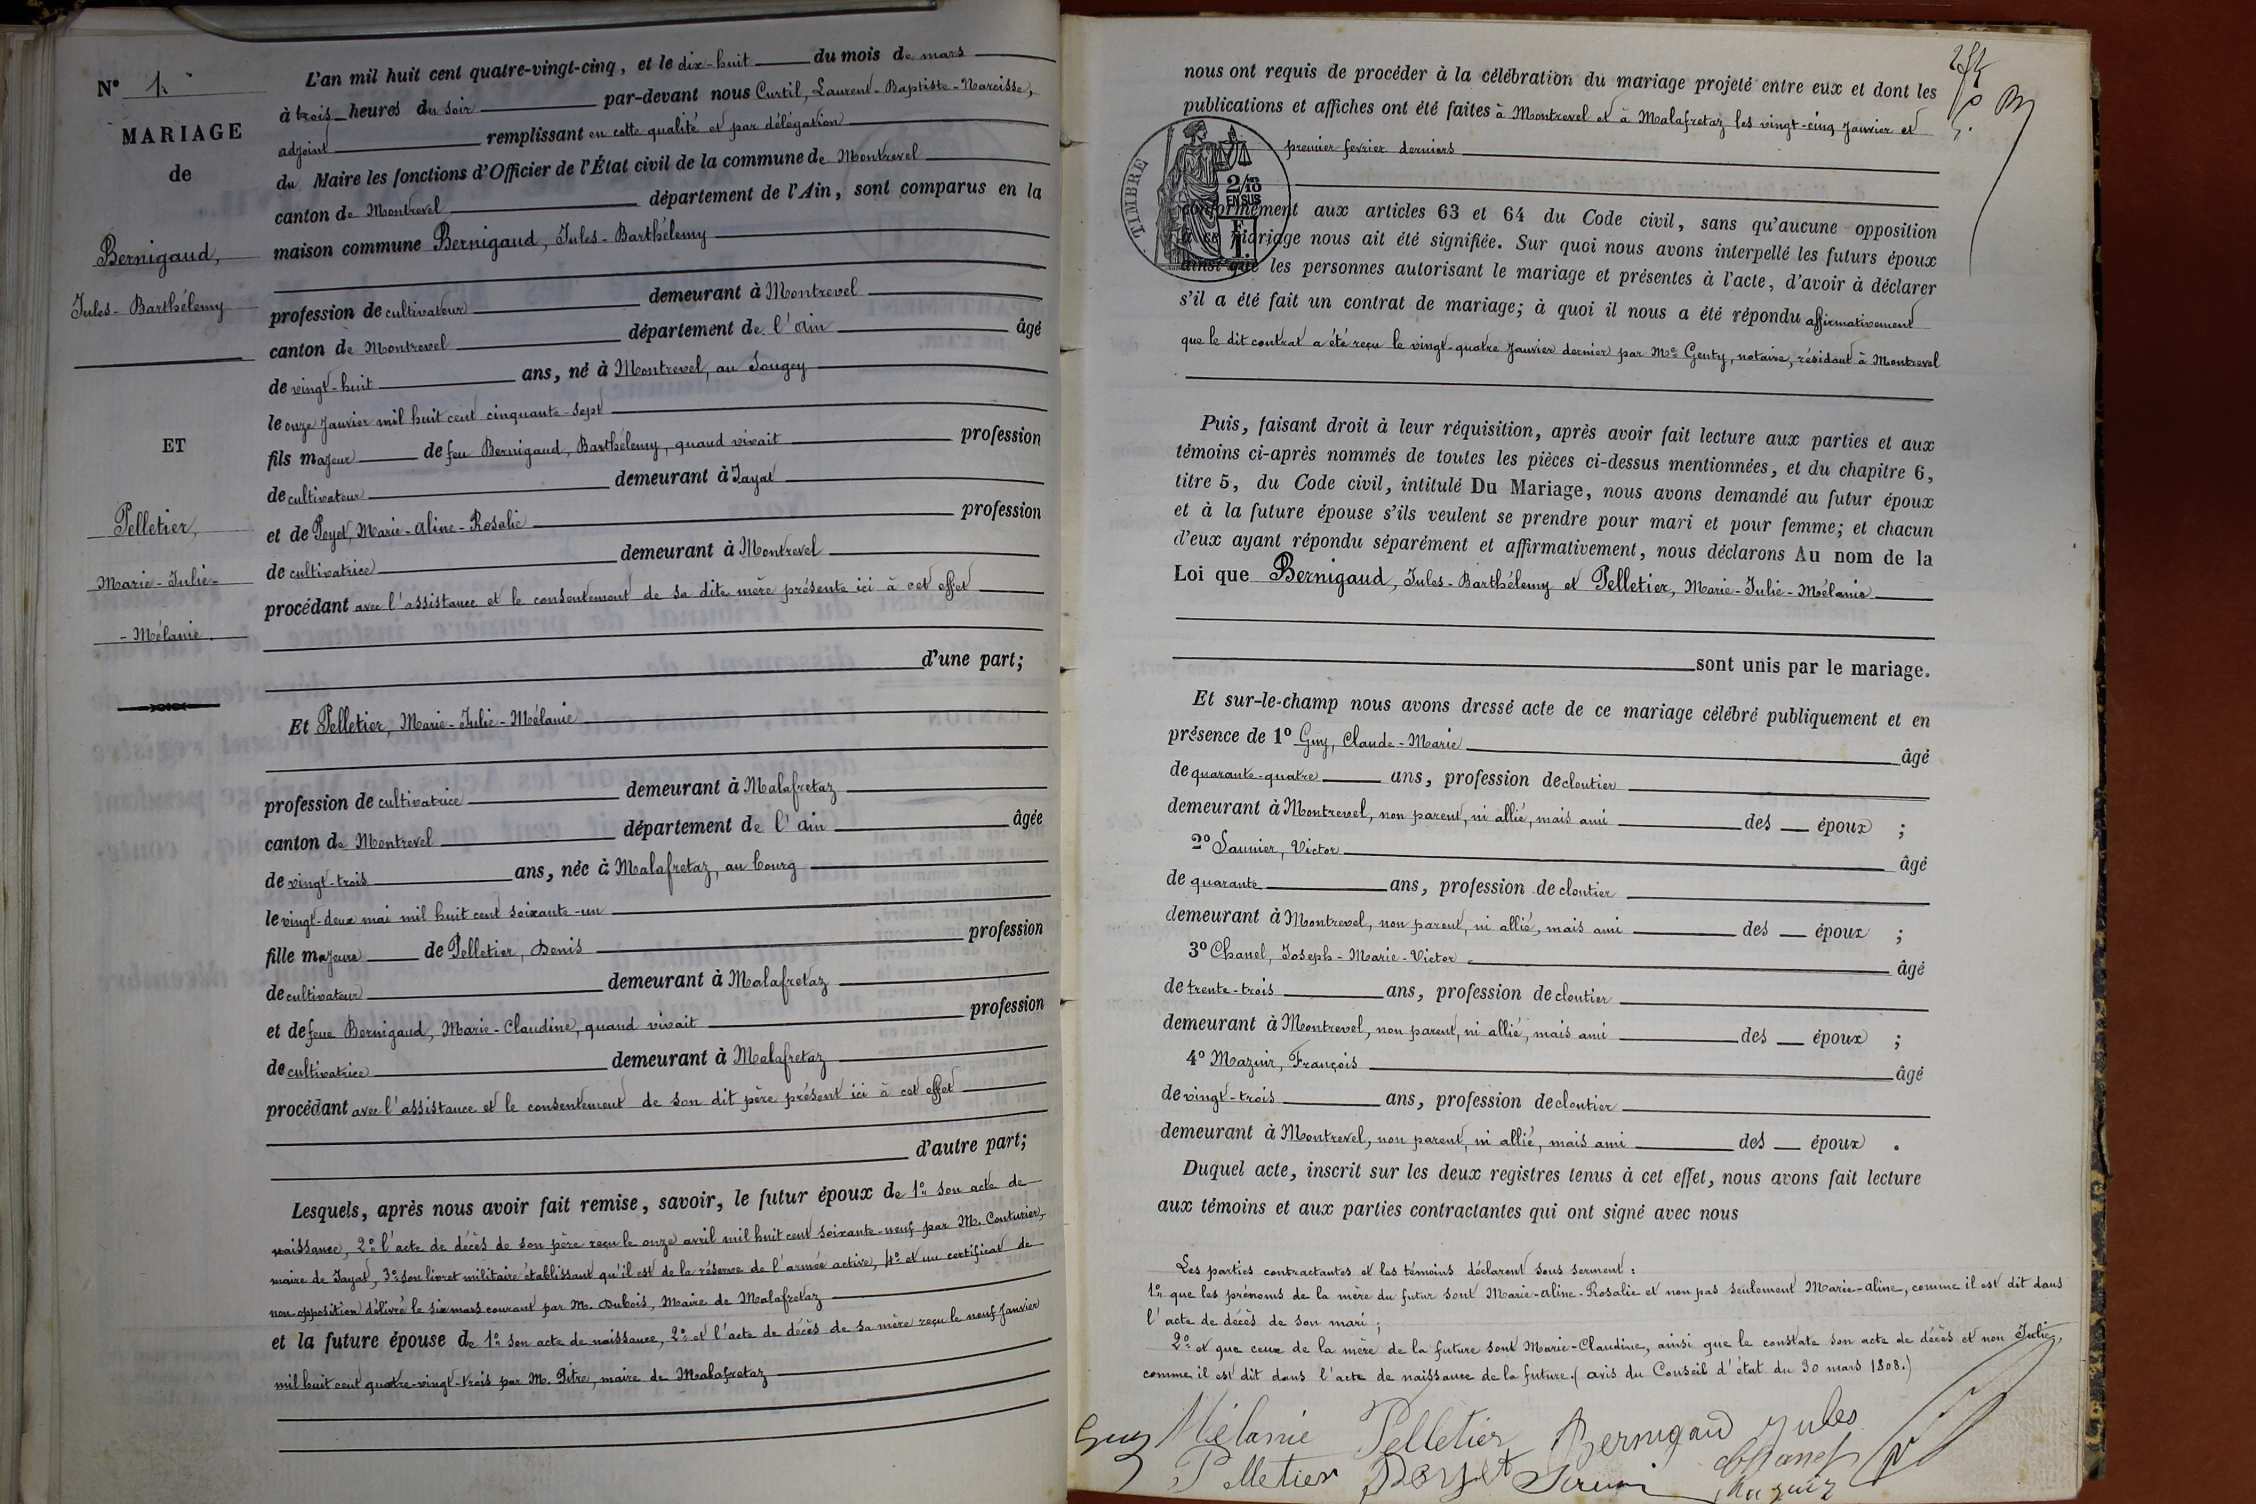 N° 1.
MARIAGE
de
Bernigaud,
Jules-Barthélemy
ET
Pelletier,
Marie-Julie-
-Mélanie.
L'an mil huit cent quatre-vingt-cinq, et le dix-huit du mois de mars
à trois heures du soir par-devant nous Curtil, Laurent-Baptiste-Narcisse,
adjoint remplissant en cette qualité et par délégation
du Maire les fonctions d'Officier de l'État civil de la commune de Montrevel
canton de Montrevel département de l'Ain, sont comparus en la
maison commune Bernigaud, Jules-Barthélemy
profession de cultivateur demeurant à Montrevel
canton de Montrevel département de l'ain âgé
de vingt-huit ans, né à Montrevel, au Sougey
le onze janvier mil huit cent cinquante-sept
fils majeur de feu Bernigaud, Barthélemy, quand vivait profession
de cultivateur demeurant à Jayat
et de Poyet, Marie-aline-Rosalie profession
de cultivatrice demeurant à Montrevel
procédant avec l'assistance et le consentement de sa dite mère présente ici à cet effet
d'une part;
Et Pelletier, Marie-Julie-Mélanie
profession de cultivatrice demeurant à Malafretaz
canton de Montrevel département de l'ain âgée
de vingt-trois ans, née à Malafretaz, au bourg
le vingt-deux mai mil huit cent soixante-un
fille majeure de Pelletier, Denis profession
de cultivateur demeurant à Malafretaz
et de feue Bernigaud, Marie-Claudine, quand vivait profession
de cultivatrice demeurant à Malafretaz
procédant avec l'assistance et le consentement de son dit père présent ici à cet effet
d'autre part;
Lesquels, après nous avoir fait remise, savoir, le futur époux de 1° son acte de
naissance, 2° l'acte de décès de son père reçu le onze avril mil huit cent soixante-neuf par M. Couturier,
maire de Jayat, 3° son livret militaire établissant qu'il est de la réserve de l'armée active, 4° et un certificat de
non opposition délivré le six mars courant par M. Dubois, Maire de Malafretaz
et la future épouse de 1° son acte de naissance, 2° et l'acte de décès de sa mère reçu le neuf janvier
mil huit cent quatre-vingt-trois par M. Pitre, maire de Malafretaz
nous ont requis de procéder à la célébration du mariage projeté entre eux et dont les
publications et affiches ont été faites à Montrevel et à Malafretaz les vingt-cinq janvier et
premier fevrier derniers
TIMBRE
2/10
EN SUS
F
1.
conformément aux articles 63 et 64 du Code civil, sans qu'aucune opposition
à ce mariage nous ait été signifiée. Sur quoi nous avons interpellé les futurs époux
ainsi que les personnes autorisant le mariage et présentes à l'acte, d'avoir à déclarer
s'il a été fait un contrat de mariage; à quoi il nous a été répondu affirmativement
que le dit contrat a été reçu le vingt-quatre janvier dernier par Me Genty, notaire, résidant à Montrevel
Puis, faisant droit à leur réquisition, après avoir fait lecture aux parties et aux
témoins ci-après nommés de toutes les pièces ci-dessus mentionnées, et du chapitre 6,
titre 5, du Code civil, intitulé Du Mariage, nous avons demandé au futur époux
et à la future épouse s'ils veulent se prendre pour mari et pour femme; et chacun
d'eux ayant répondu séparément et affirmativement, nous déclarons Au nom de la
Loi que Bernigaud, Jules-Barthélemy et Pelletier, Marie-Julie-Mélanie
sont unis par le mariage.
Et sur-le-champ nous avons dressé acte de ce mariage célébré publiquement et en
présence de 1° Guy, Claude-Marie âgé
de quarante-quatre ans, profession de cloutier
demeurant à Montrevel, non parent, ni allié, mais ami des époux ;
2° Saunier, Victor âgé
de quarante ans, profession de cloutier
demeurant à Montrevel, non parent, ni allié, mais ami des époux ;
3° Chanel, Joseph-Marie-Victor âgé
de trente-trois ans, profession de cloutier
demeurant à Montrevel, non parent, ni allié, mais ami des époux ;
4° Mazuir, François âgé
de vingt-trois ans, profession de cloutier
demeurant à Montrevel, non parent, ni allié, mais ami des époux .
Duquel acte, inscrit sur les deux registres tenus à cet effet, nous avons fait lecture
aux témoins et aux parties contractantes qui ont signé avec nous
Les parties contractantes et les témoins déclarent sous serment :
1° que les prénoms de la mère du futur sont Marie-aline-Rosalie et non pas seulement Marie-aline, comme il est dit dans
l'acte de décès de son mari ;
2° et que ceux de la mère de la future sont Marie-Claudine, ainsi que le constate son acte de décès et non Julie,
comme il est dit dans l'acte de naissance de la future. (avis du Conseil d'état du 30 mars 1808.)
Guy Mélanie Pelletier Bernigaud jules
Pelletier Poyet Chanel
Mazuir